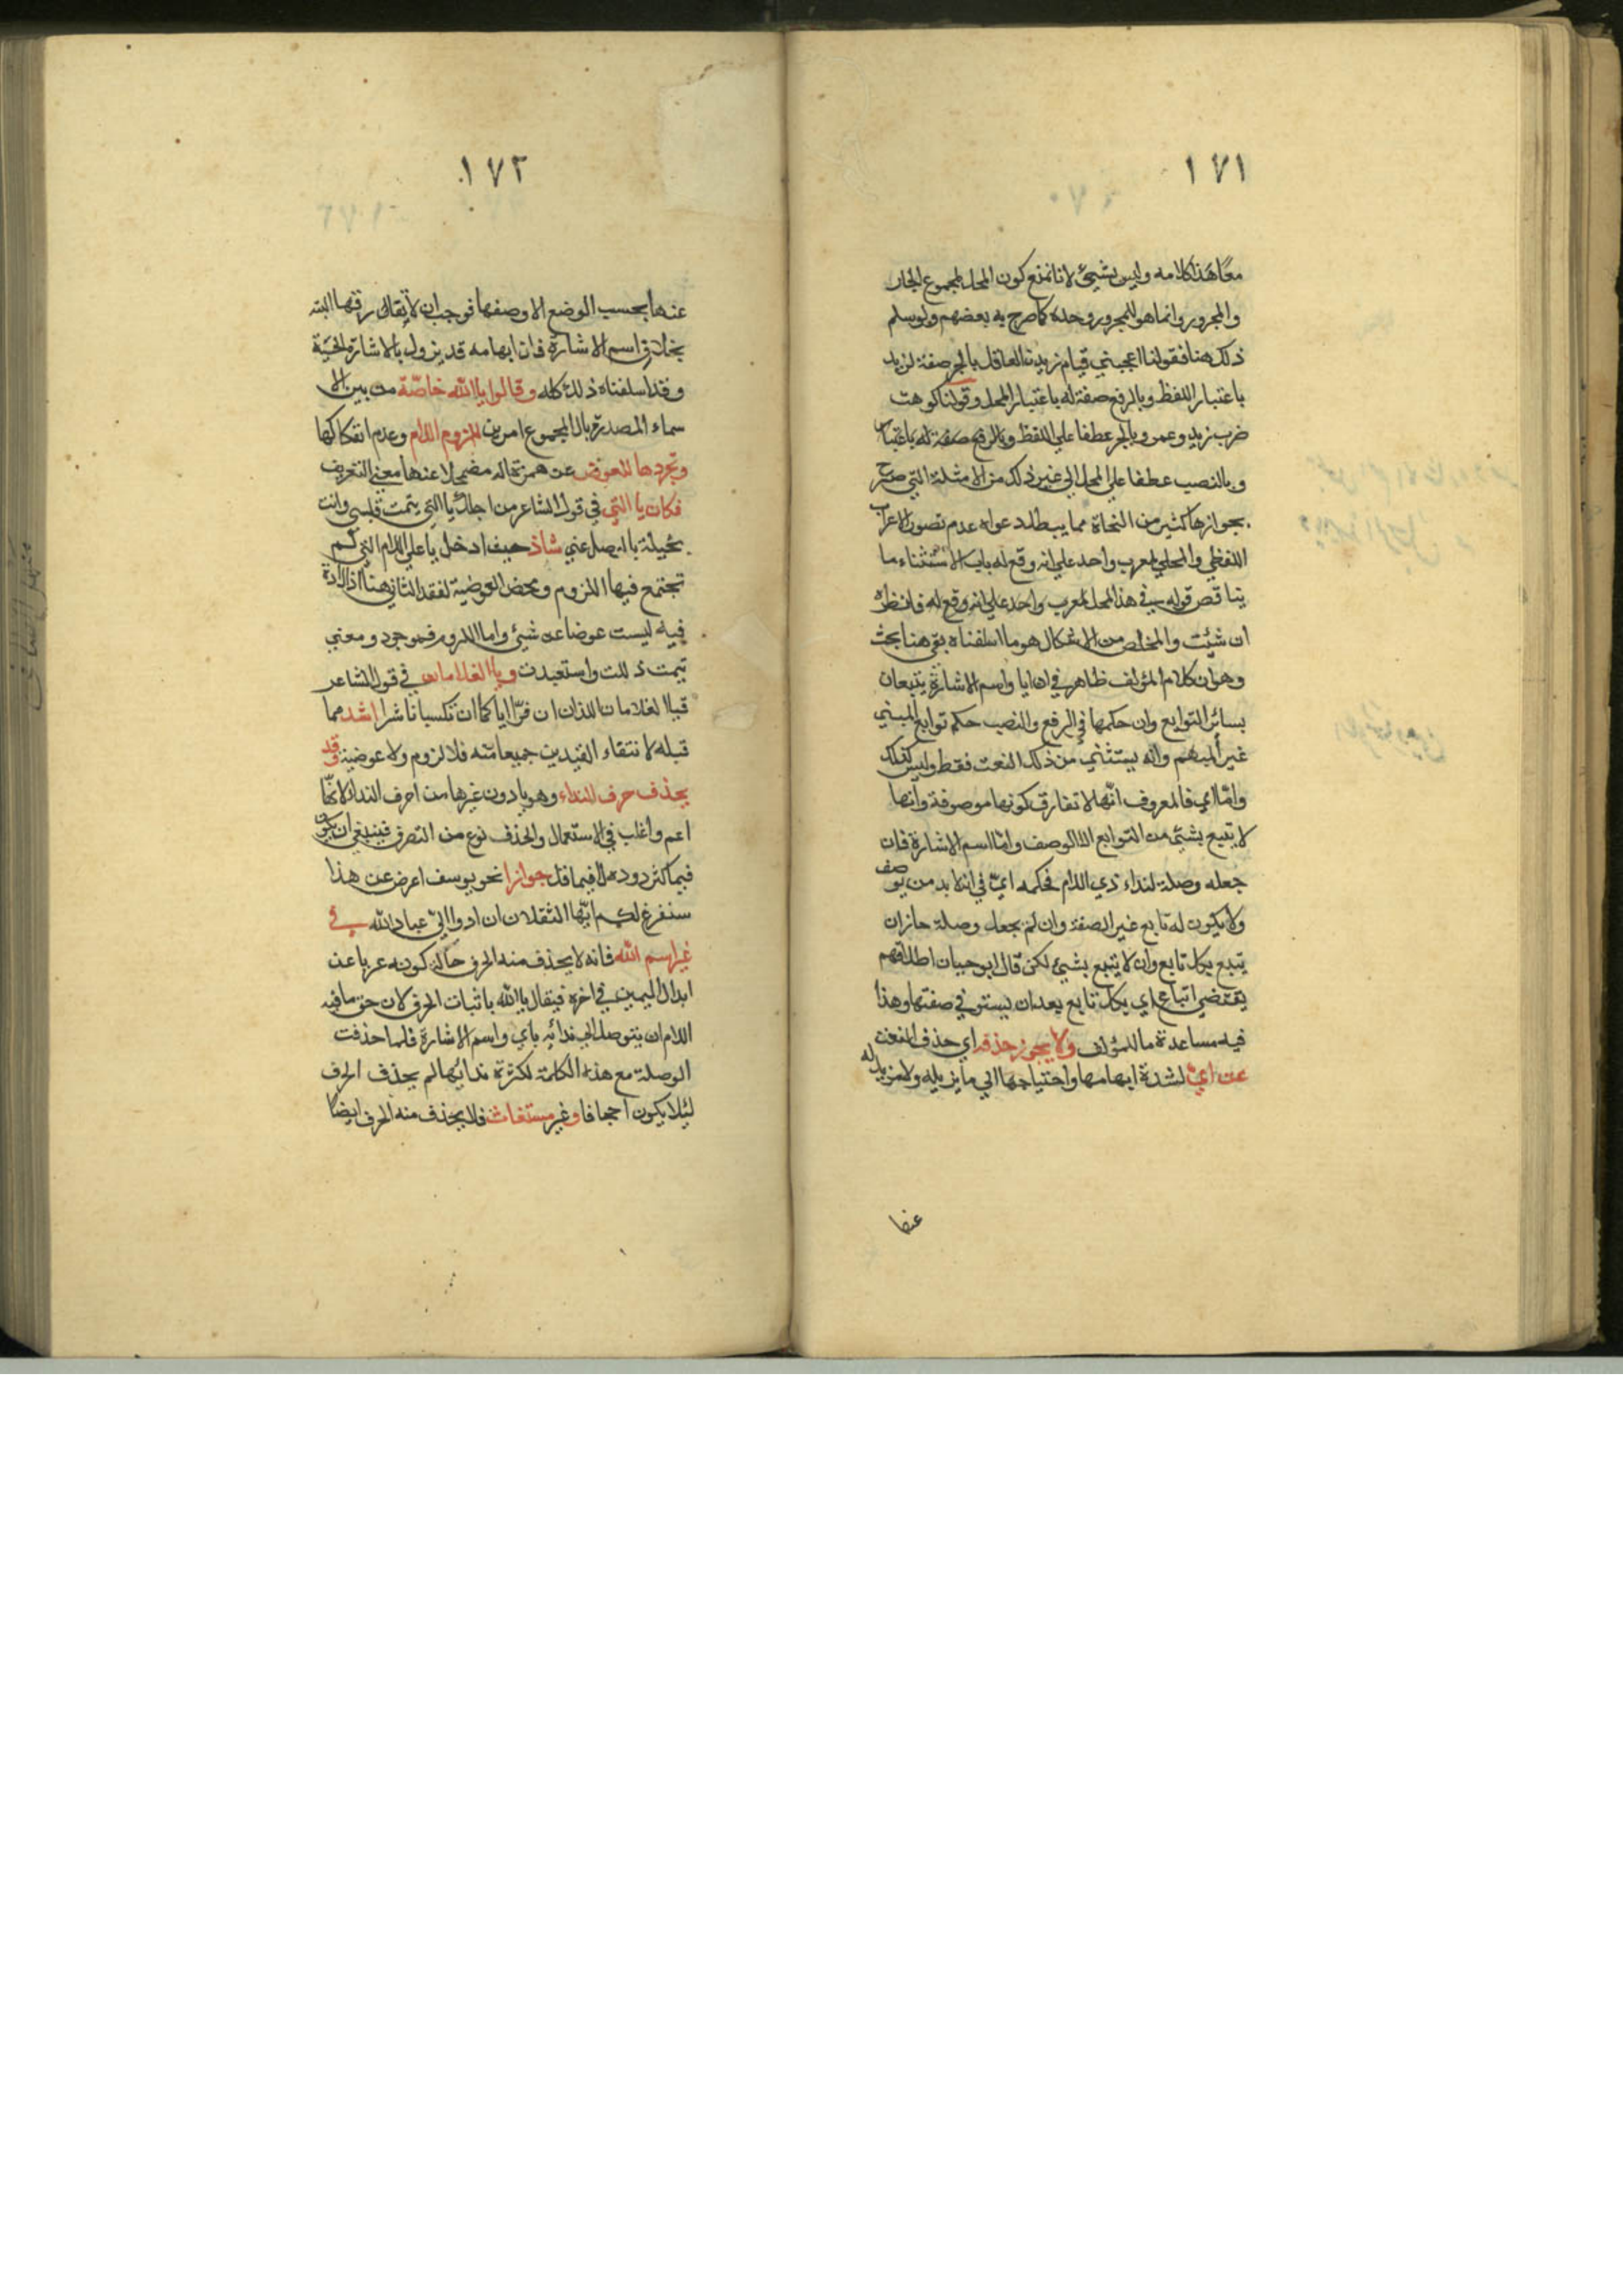 ١٧١
معًا هذا كلامه وليس بشيئ لانا نمنع كون المحل لمجموع الجار
والمجرور وانما هو للمجرور وحده كما صرح به بعضهم ولو سلم
ذلك هنا فقولنا اعجبني قيام زيد العاقل بالجر صفة لزيد
باعتبار اللفظ وبالرفع صفة له باعتبار المحل وقولنا كرهت
ضرب زيد وعمرو بالجر عطفا علي اللفظ وبالرفع صفة له باعتبار
وبالنصب عطفا علي المحل الي غير ذلك من الامثلة التي صرح
بجوازها كثير من النحاة مما يبطل دعواه عدم تصور الاعراب
اللفظي والمحلي لمعرب واحد علي انه وقع له باب الاستثناء ما
يناقض قوله في هذا المحل لمعرب واحد علي انه وقع له فانظره
ان شئت والمخلص من الاشكال هو ما اسلفناه بقي هنا بحث
وهو ان كلام المؤلف ظاهر في ان ايا واسم الاشارة يتبعان
بسائر التوابع وان حكمها في الرفع والنصب حكم توابع المبني
غير المبهم وانه يستثني من ذلك النعت فقط وليس كذلك
واما اي فالمعروف انها لا تفارق كونها موصوفة وانها
لا يتبع بشئ من التوابع الا الوصف واما اسم الاشارة فان
جعله وصلة لنداء ذي اللام فحكمه اي في انه لابد من يوصف
ولا يكون له تابع غير الصفة وان لم يجعل وصلة جاز ان
يتبع بكل تابع وان لا يتبع بشيئ لكن قال ابو حيان اطلاقهم
يقتضي اتباع اي بكل تابع بعد ان يستوفي صفتها وهذا
فيه مساعدة ما للمؤلف ولا يجوز حذفه اي حذف النعت
عن اي لشدة ابهامها واحتياجها الي ما يزيله ولا مزيل له
عنها
١٧٢
عنها بحسب الوضع الا وصفها فوجب ان لا يقال رقها البته
بخلاف اسم الاشارة فان ابهامه قد يزول بالاشارة الحسّية
وقد اسلفناه ذلك كله وقالوا يا الله خاصّة من بين الا
سماء المصدرة بال لمجموع امرين لزوم اللام وعدم انفكاكها
وتجردها للعوض عن همزة اله مضمحلا عنها معني التعريف
فكان يا التي في قول الشاعر من اجلك يا التي تيمت قلبي وانت
بخيلة بالوصل عني شاذ حيث ادخل يا علي اللام التي لم
تجتمع فيها اللزوم ومحض العوضية لفقد الثاني هنا اذ اللام
فيه ليست عوضا عن شيئ واما اللزوم فموجود ومعني
تيمت ذللت واستعبدت ويا الغلامان في قول الشاعر
فيا الغلامان اللذان ان فرّا اياكما ان تكسبانا شرا اشد مما
قبله لانتفاء القيدين جميعا منه فلا لزوم ولا عوضية وقد
يحذف حرف النداء وهو يا دون غيرها من احرف النداء لانها
اعم واغلب في الاستعمال والحذف نوع من التصرف فينبغي ان يكون
فيما كثر دوره لا فيما قل جوازا نحو يوسف اعرض عن هذا
سنفرغ لكم ايّها الثقلان ان ادوا اليّ عباد الله في
غير اسم الله فانه لا يحذف منه الحرف حالة كونه عريا عن
ابدال الميمين في اخره فيقال يا الله باثبات الحرف لان حق ما فيه
اللام ان يتوصل الي ندائه باي واسم الاشارة فلما حذفت
الوصلة مع هذه الكلمة لكثرة ندائها لم يحذف الحرف
لئلا يكون اجحافا وغير مستغاث فلا يحذف منه الحرف ايضا